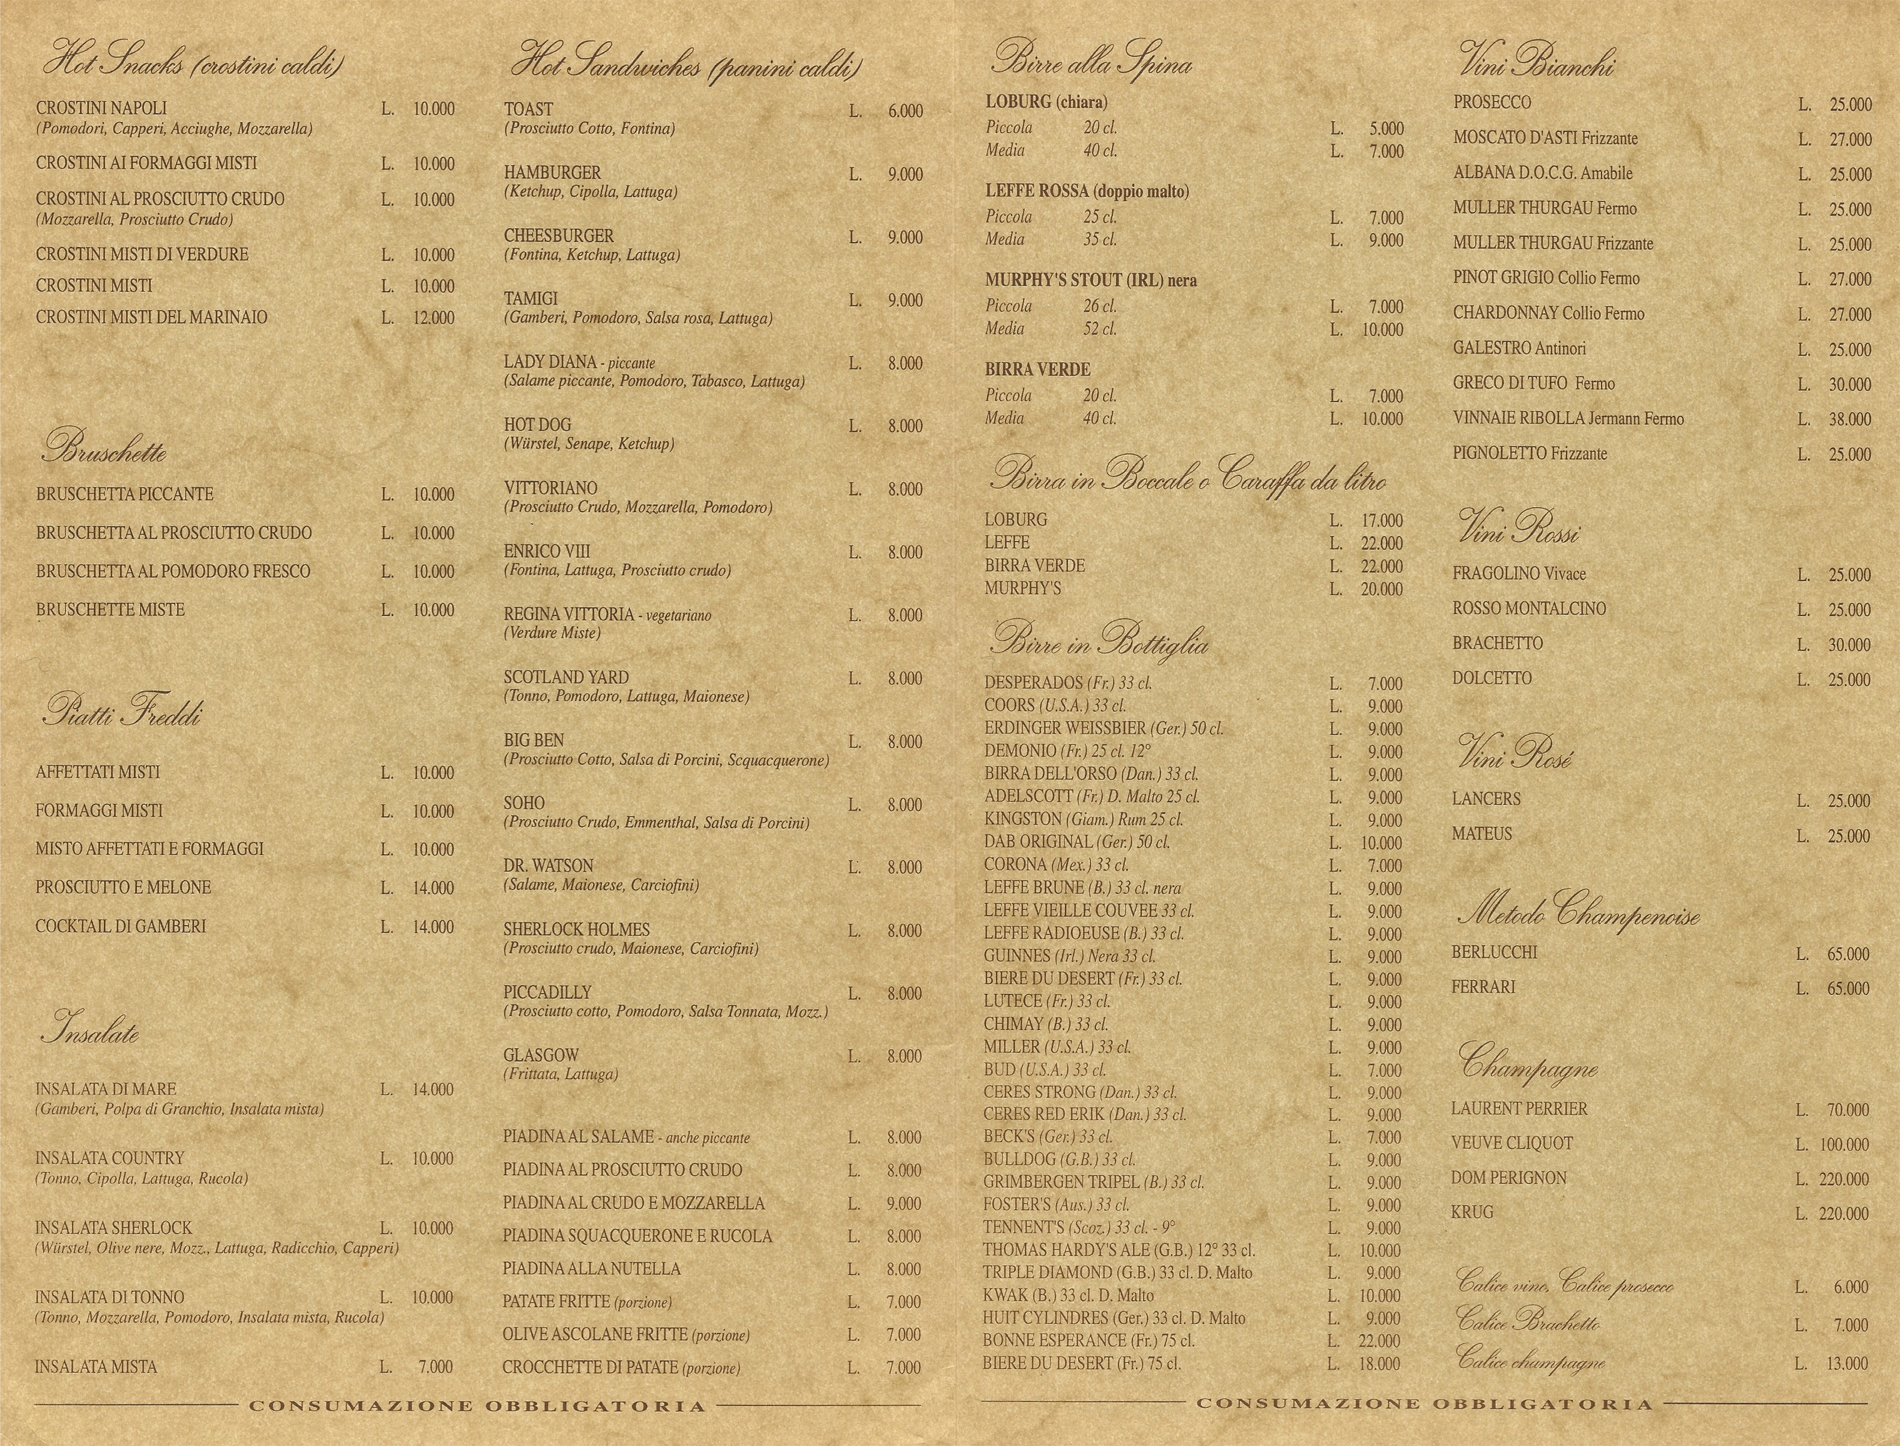 Hot Snacks (crostini caldi)
CROSTINI NAPOLI L. 10.000
(Pomodori, Capperi, Acciughe, Mozzarella)
CROSTINI AI FORMAGGI MISTI L. 10.000
CROSTINI AL PROSCIUTTO CRUDO L. 10.000
(Mozzarella, Prosciutto Crudo)
CROSTINI MISTI DI VERDURE L. 10.000
CROSTINI MISTI L. 10.000
CROSTINI MISTI DEL MARINAIO L. 12.000
Bruschette
BRUSCHETTA PICCANTE L. 10.000
BRUSCHETTA AL PROSCIUTTO CRUDO L. 10.000
BRUSCHETTA AL POMODORO FRESCO L. 10.000
BRUSCHETTE MISTE L. 10.000
Piatti Freddi
AFFETTATI MISTI L. 10.000
FORMAGGI MISTI L. 10.000
MISTO AFFETTATI E FORMAGGI L. 10.000
PROSCIUTTO E MELONE L. 14.000
COCKTAIL DI GAMBERI L. 14.000
Insalate
INSALATA DI MARE L. 14.000
(Gamberi, Polpa di Granchio, Insalata mista)
INSALATA COUNTRY L. 10.000
(Tonno, Cipolla, Lattuga, Rucola)
INSALATA SHERLOCK L. 10.000
(Würstel, Olive nere, Mozz., Lattuga, Radicchio, Capperi)
INSALATA DI TONNO L. 10.000
(Tonno, Mozzarella, Pomodoro, Insalata mista, Rucola)
INSALATA MISTA L. 7.000
Hot Sandwiches (panini caldi)
TOAST L. 6.000
(Prosciutto Cotto, Fontina)
HAMBURGER L. 9.000
(Ketchup, Cipolla, Lattuga)
CHEESBURGER L. 9.000
(Fontina, Ketchup, Lattuga)
TAMIGI L. 9.000
(Gamberi, Pomodoro, Salsa rosa, Lattuga)
LADY DIANA - piccante L. 8.000
(Salame piccante, Pomodoro, Tabasco, Lattuga)
HOT DOG L. 8.000
(Würstel, Senape, Ketchup)
VITTORIANO L. 8.000
(Prosciutto Crudo, Mozzarella, Pomodoro)
ENRICO VIII L. 8.000
(Fontina, Lattuga, Prosciutto crudo)
REGINA VITTORIA - vegetariano L. 8.000
(Verdure Miste)
SCOTLAND YARD L. 8.000
(Tonno, Pomodoro, Lattuga, Maionese)
BIG BEN L. 8.000
(Prosciutto Cotto, Salsa di Porcini, Scquacquerone)
SOHO L. 8.000
(Prosciutto Crudo, Emmenthal, Salsa di Porcini)
DR. WATSON L. 8.000
(Salame, Maionese, Carciofini)
SHERLOCK HOLMES L. 8.000
(Prosciutto crudo, Maionese, Carciofini)
PICCADILLY L. 8.000
(Prosciutto cotto, Pomodoro, Salsa Tonnata, Mozz.)
GLASGOW L. 8.000
(Frittata, Lattuga)
PIADINA AL SALAME - anche piccante L. 8.000
PIADINA AL PROSCIUTTO CRUDO L. 8.000
PIADINA AL CRUDO E MOZZARELLA L. 9.000
PIADINA SQUACQUERONE E RUCOLA L. 8.000
PIADINA ALLA NUTELLA L. 8.000
PATATE FRITTE (porzione) L. 7.000
OLIVE ASCOLANE FRITTE (porzione) L. 7.000
CROCCHETTE DI PATATE (porzione) L. 7.000
CONSUMAZIONE OBBLIGATORIA
Birre alla Spina
LOBURG (chiara)
Piccola 20 cl. L. 5.000
Media 40 cl. L. 7.000
LEFFE ROSSA (doppio malto)
Piccola 25 cl. L. 7.000
Media 35 cl. L. 9.000
MURPHY'S STOUT (IRL) nera
Piccola 26 cl. L. 7.000
Media 52 cl. L. 10.000
BIRRA VERDE
Piccola 20 cl. L. 7.000
Media 40 cl. L. 10.000
Birra in Boccale o Caraffa da litro
LOBURG L. 17.000
LEFFE L. 22.000
BIRRA VERDE L. 22.000
MURPHY'S L. 20.000
Birre in Bottiglia
DESPERADOS (Fr.) 33 cl. L. 7.000
COORS (U.S.A.) 33 cl. L. 9.000
ERDINGER WEISSBIER (Ger.) 50 cl. L. 9.000
DEMONIO (Fr.) 25 cl. 12° L. 9.000
BIRRA DELL'ORSO (Dan.) 33 cl. L. 9.000
ADELSCOTT (Fr.) D. Malto 25 cl. L. 9.000
KINGSTON (Giam.) Rum 25 cl. L. 9.000
DAB ORIGINAL (Ger.) 50 cl. L. 10.000
CORONA (Mex.) 33 cl. L. 7.000
LEFFE BRUNE (B.) 33 cl. nera L. 9.000
LEFFE VIEILLE COUVEE 33 cl. L. 9.000
LEFFE RADIOEUSE (B.) 33 cl. L. 9.000
GUINNES (Irl.) Nera 33 cl. L. 9.000
BIERE DU DESERT (Fr.) 33 cl. L. 9.000
LUTECE (Fr.) 33 cl. L. 9.000
CHIMAY (B.) 33 cl. L. 9.000
MILLER (U.S.A.) 33 cl. L. 9.000
BUD (U.S.A.) 33 cl. L. 7.000
CERES STRONG (Dan.) 33 cl. L. 9.000
CERES RED ERIK (Dan.) 33 cl. L. 9.000
BECK'S (Ger.) 33 cl. L. 7.000
BULLDOG (G.B.) 33 cl. L. 9.000
GRIMBERGEN TRIPEL (B.) 33 cl. L. 9.000
FOSTER'S (Aus.) 33 cl. L. 9.000
TENNENT'S (Scoz.) 33 cl. - 9° L. 9.000
THOMAS HARDY'S ALE (G.B.) 12° 33 cl. L. 10.000
TRIPLE DIAMOND (G.B.) 33 cl. D. Malto L. 9.000
KWAK (B.) 33 cl. D. Malto L. 10.000
HUIT CYLINDRES (Ger.) 33 cl. D. Malto L. 9.000
BONNE ESPERANCE (Fr.) 75 cl. L. 22.000
BIERE DU DESERT (Fr.) 75 cl. L. 18.000
Vini Bianchi
PROSECCO L. 25.000
MOSCATO D'ASTI Frizzante L. 27.000
ALBANA D.O.C.G. Amabile L. 25.000
MULLER THURGAU Fermo L. 25.000
MULLER THURGAU Frizzante L. 25.000
PINOT GRIGIO Collio Fermo L. 27.000
CHARDONNAY Collio Fermo L. 27.000
GALESTRO Antinori L. 25.000
GRECO DI TUFO Fermo L. 30.000
VINNAIE RIBOLLA Jermann Fermo L. 38.000
PIGNOLETTO Frizzante L. 25.000
Vini Rossi
FRAGOLINO Vivace L. 25.000
ROSSO MONTALCINO L. 25.000
BRACHETTO L. 30.000
DOLCETTO L. 25.000
Vini Rosé
LANCERS L. 25.000
MATEUS L. 25.000
Metodo Champenoise
BERLUCCHI L. 65.000
FERRARI L. 65.000
Champagne
LAURENT PERRIER L. 70.000
VEUVE CLIQUOT L. 100.000
DOM PERIGNON L. 220.000
KRUG L. 220.000
Calice vino, Calice prosecco L. 6.000
Calice Brachetto L. 7.000
Calice champagne L. 13.000
CONSUMAZIONE OBBLIGATORIA